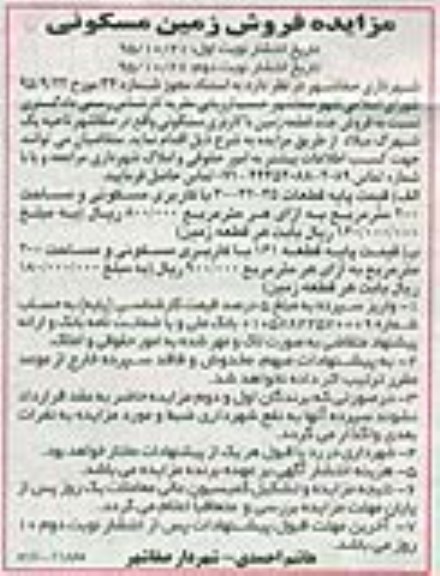 مزایده فروش زمین مسکونی
تاریخ انتشار نوبت اول: ۹۵/۱۰/۲۰
تاریخ انتشار نوبت دوم:
شهرداری صفاشهر در نظر دارد به استناد مجوز شماره ۳۴ مورخ ۹۵/۹/۲۲
شورای اسلامی شهر صفاشهر حسب ارزیابی نظریه کارشناس رسمی دادگستری
نسبت به فروش چند قطعه زمین با کاربری مسکونی واقع در صفاشهر ناحیه یک
شهرک میلاد از طریق مزایده به شرح ذیل اقدام نماید. متقاضیان می توانند
جهت کسب اطلاعات بیشتر به امور حقوقی و املاک شهرداری مراجعه و یا با
شماره تماس تماس حاصل فرمایید.
الف) قیمت پایه قطعات با کاربری مسکونی و مساحت
۲۰۰ مترمربع به ازای هر مترمربع ۸۰۰/۰۰۰ ریال (به مبلغ
۱۶۰/۰۰۰/۰۰۰ ریال بابت هر قطعه زمین)
ب) قیمت پایه قطعه ۱۶۱ با کاربری مسکونی و مساحت ۲۰۰
مترمربع به ازای هر مترمربع ۹۰۰/۰۰۰ ریال (به مبلغ ۱۸۰/۰۰۰/۰۰۰
ریال بابت هر قطعه زمین)
۱- واریز سپرده به مبلغ ۵ درصد قیمت کارشناسی (پایه) به حساب
شماره بانک ملی و یا ضمانت نامه بانک و ارائه
پیشنهاد متقاضی به صورت لاک و مهر شده به امور حقوقی و املاک.
۲- به پیشنهادات مبهم، مخدوش و فاقد سپرده خارج از موعد
مقرر ترتیب اثر داده نخواهد شد.
۳- در صورتی که برندگان اول و دوم مزایده حاضر به عقد قرارداد
نشوند سپرده آنها به نفع شهرداری ضبط و مورد مزایده به نفرات
بعدی واگذار می گردد.
۴- شهرداری در رد یا قبول هر یک از پیشنهادات مختار خواهد بود.
۵- هزینه انتشار آگهی بر عهده برنده مزایده می باشد.
۶- نتیجه مزایده و تشکیل کمیسیون عالی معاملات یک روز پس از
پایان مهلت مزایده بررسی و متعاقبا اعلام می گردد.
۷- آخرین مهلت قبول پیشنهادات پس از انتشار نوبت دوم ۱۰
روز می باشد.
هاشم احمدی - شهردار صفاشهر